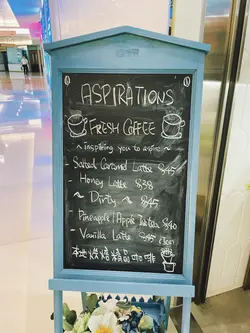 ASPIRATIONS
FRESH COFFEE
~ inspiring you to aspire ~
- Salted Caramel Latte $45
- Honey Latte $38
~ Dirty ~ $45
- Pineapple/Apple Juice Tea $40
- Vanilla Latte $45
本地烘焙精品咖啡